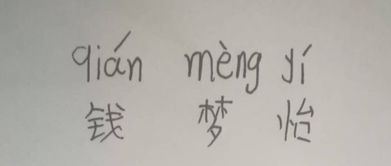 qián mèng yí
钱 梦 怡